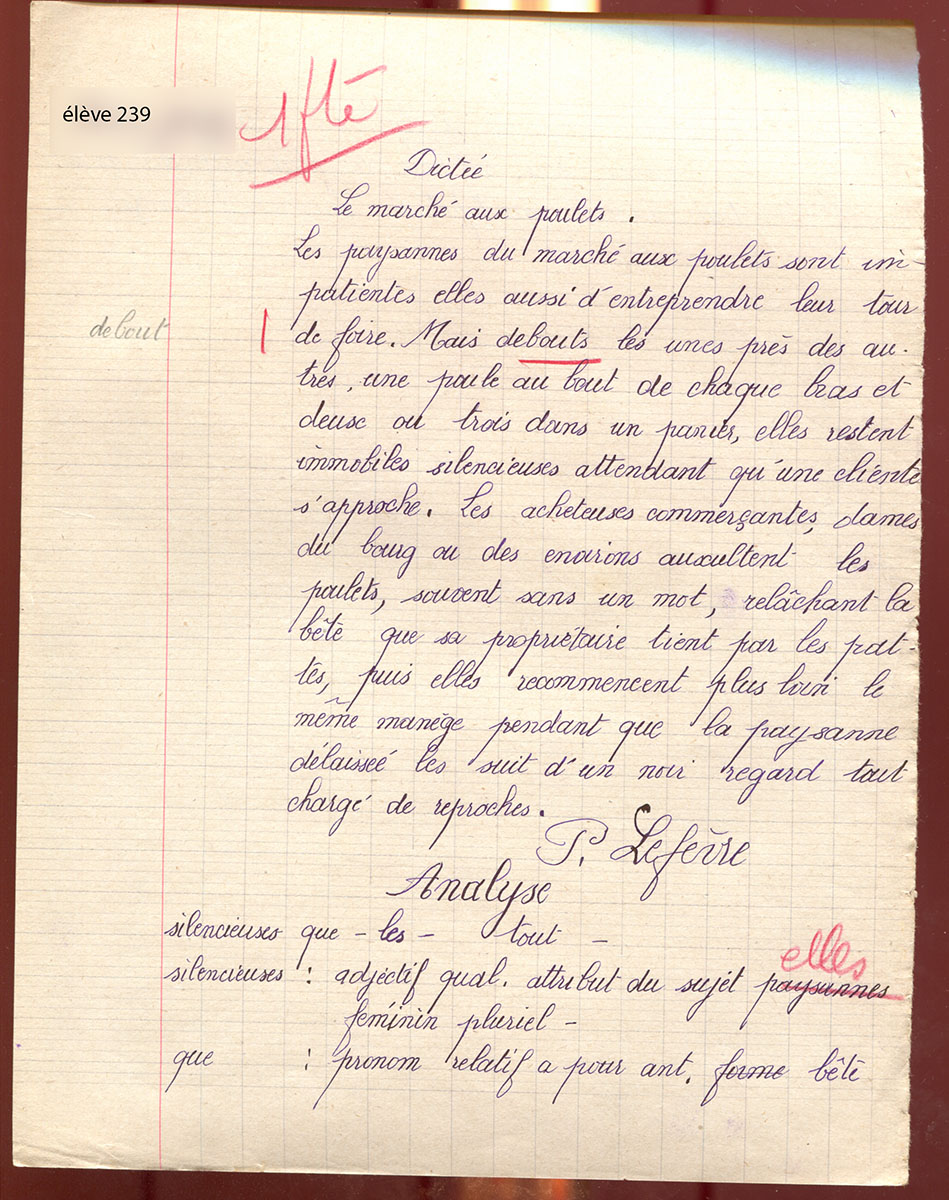 élève 239
1 fte
Dictée
Le marché aux poulets.
Les paysannes du marché aux poulets sont im
patientes elles aussi d'entreprendre leur tour
debout | de foire. Mais debouts les unes près des au-
tres, une poule au bout de chaque bras et
deux ou trois dans un panier, elles restent
immobiles silencieuses attendant qu'une cliente
s'approche. Les acheteuses commerçantes, dames
du bourg ou des environs auxultent les
poulets, souvent sans un mot, relâchant la
bête que sa propriétaire tient par les pat-
tes, puis elles recommencent plus loin le
même manège pendant que la paysanne
délaissée les suit d'un noir regard tout
chargé de reproches.
P. Lefèvre
Analyse
silencieuses que - les - tout -
elles
silencieuses : adjectif qual. attribut du sujet paysannes
féminin pluriel -
que : pronom relatif a pour ant. forme bête